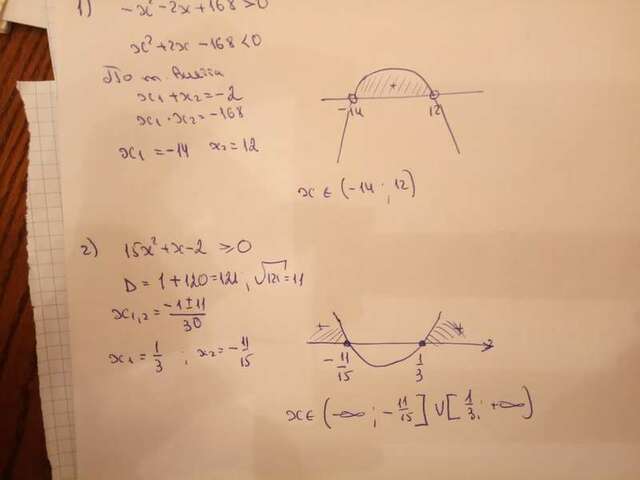 1) -x² - 2x + 168 > 0
x² + 2x - 168 < 0
x₁ + x₂ = -2
x₁ · x₂ = -168
x₁ = -14 x₂ = 12
-14 + 12
x ∈ (-14; 12)
2) 15x² + x - 2 ≥ 0
D = 1 + 120 = 121, √121 = 11
x₁,₂ = (-1 ± 11)/30
x₁ = 1/3 ; x₂ = -11/15
+ -11/15 1/3 +
x ∈ (-∞; -11/15] ∪ [1/3; +∞)